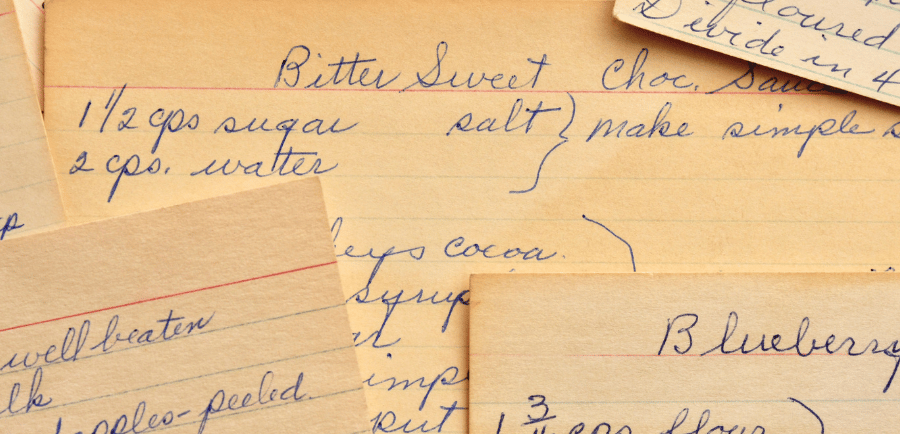 Bitter Sweet Choc. Sauc
1 1/2 cps sugar salt } make simple s
2 cps. water
leys cocoa.
syrup
ar
imp
put
floured
Divide in 4
well beaten
lk
apples - peeled.
Blueberry
1 3/4 cps flour